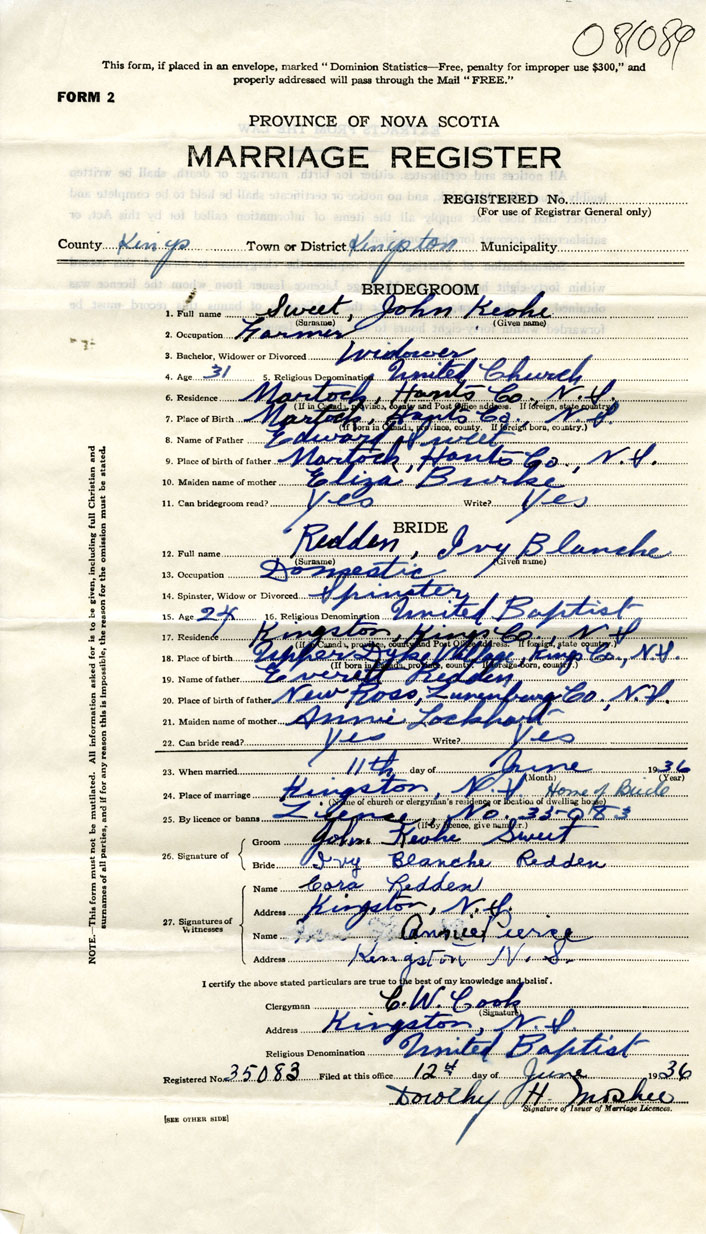 081089
This form, if placed in an envelope, marked "Dominion Statistics—Free, penalty for improper use $300," and
properly addressed will pass through the Mail "FREE."
FORM 2
PROVINCE OF NOVA SCOTIA
MARRIAGE REGISTER
REGISTERED No.
(For use of Registrar General only)
County Kings Town or District Kingston Municipality
BRIDEGROOM
1. Full name Sweet, John Keohe
(Surname) (Given name)
2. Occupation Farmer
3. Bachelor, Widower or Divorced Widower
4. Age 31 5. Religious Denomination United Church
6. Residence Martock, Hants Co., N.S.
(If in Canada, province, county and Post Office address. If foreign, state country.)
7. Place of Birth Martock, Hants Co., N.S.
(If born in Canada, province, county. If foreign born, country.)
8. Name of Father Edward Sweet
9. Place of birth of father Martock, Hants Co., N.S.
10. Maiden name of mother Eliza Burke
11. Can bridegroom read? Yes Write? Yes
BRIDE
12. Full name Redden, Ivy Blanche
(Surname) (Given name)
13. Occupation Domestic
14. Spinster, Widow or Divorced Spinster
15. Age 24 16. Religious Denomination United Baptist
17. Residence Kingston, Kings Co., N.S.
(If in Canada, province, county and Post Office address. If foreign, state country.)
18. Place of birth Upper Dyke Village, Kings Co., N.S.
(If born in Canada, province, county. If foreign-born, country.)
19. Name of father Everett Redden
20. Place of birth of father New Ross, Lunenburg Co., N.S.
21. Maiden name of mother Annie Lockhart
22. Can bride read? Yes Write? Yes
23. When married 11th day of June 1936
(Month) (Year)
24. Place of marriage Kingston, N.S. Home of Bride
(Name of church or clergyman's residence or location of dwelling home)
25. By licence or banns License, No. 35083
(If by licence, give number.)
26. Signature of
Groom John Keohe Sweet
Bride Ivy Blanche Redden
27. Signatures of Witnesses
Name Cora Redden
Address Kingston, N.S.
Name Annie Pierce
Address Kingston N.S.
I certify the above stated particulars are true to the best of my knowledge and belief.
Clergyman C. W. Cook
(Signature)
Address Kingston, N.S.
Religious Denomination United Baptist
Registered No. 35083 Filed at this office 12th day of June 1936
Dorothy H.
Signature of Issuer of Marriage Licences.
[SEE OTHER SIDE]
NOTE.—This form must not be mutilated. All information asked for is to be given, including full Christian and
surnames of all parties, and if for any reason this is impossible, the reason for the omission must be stated.